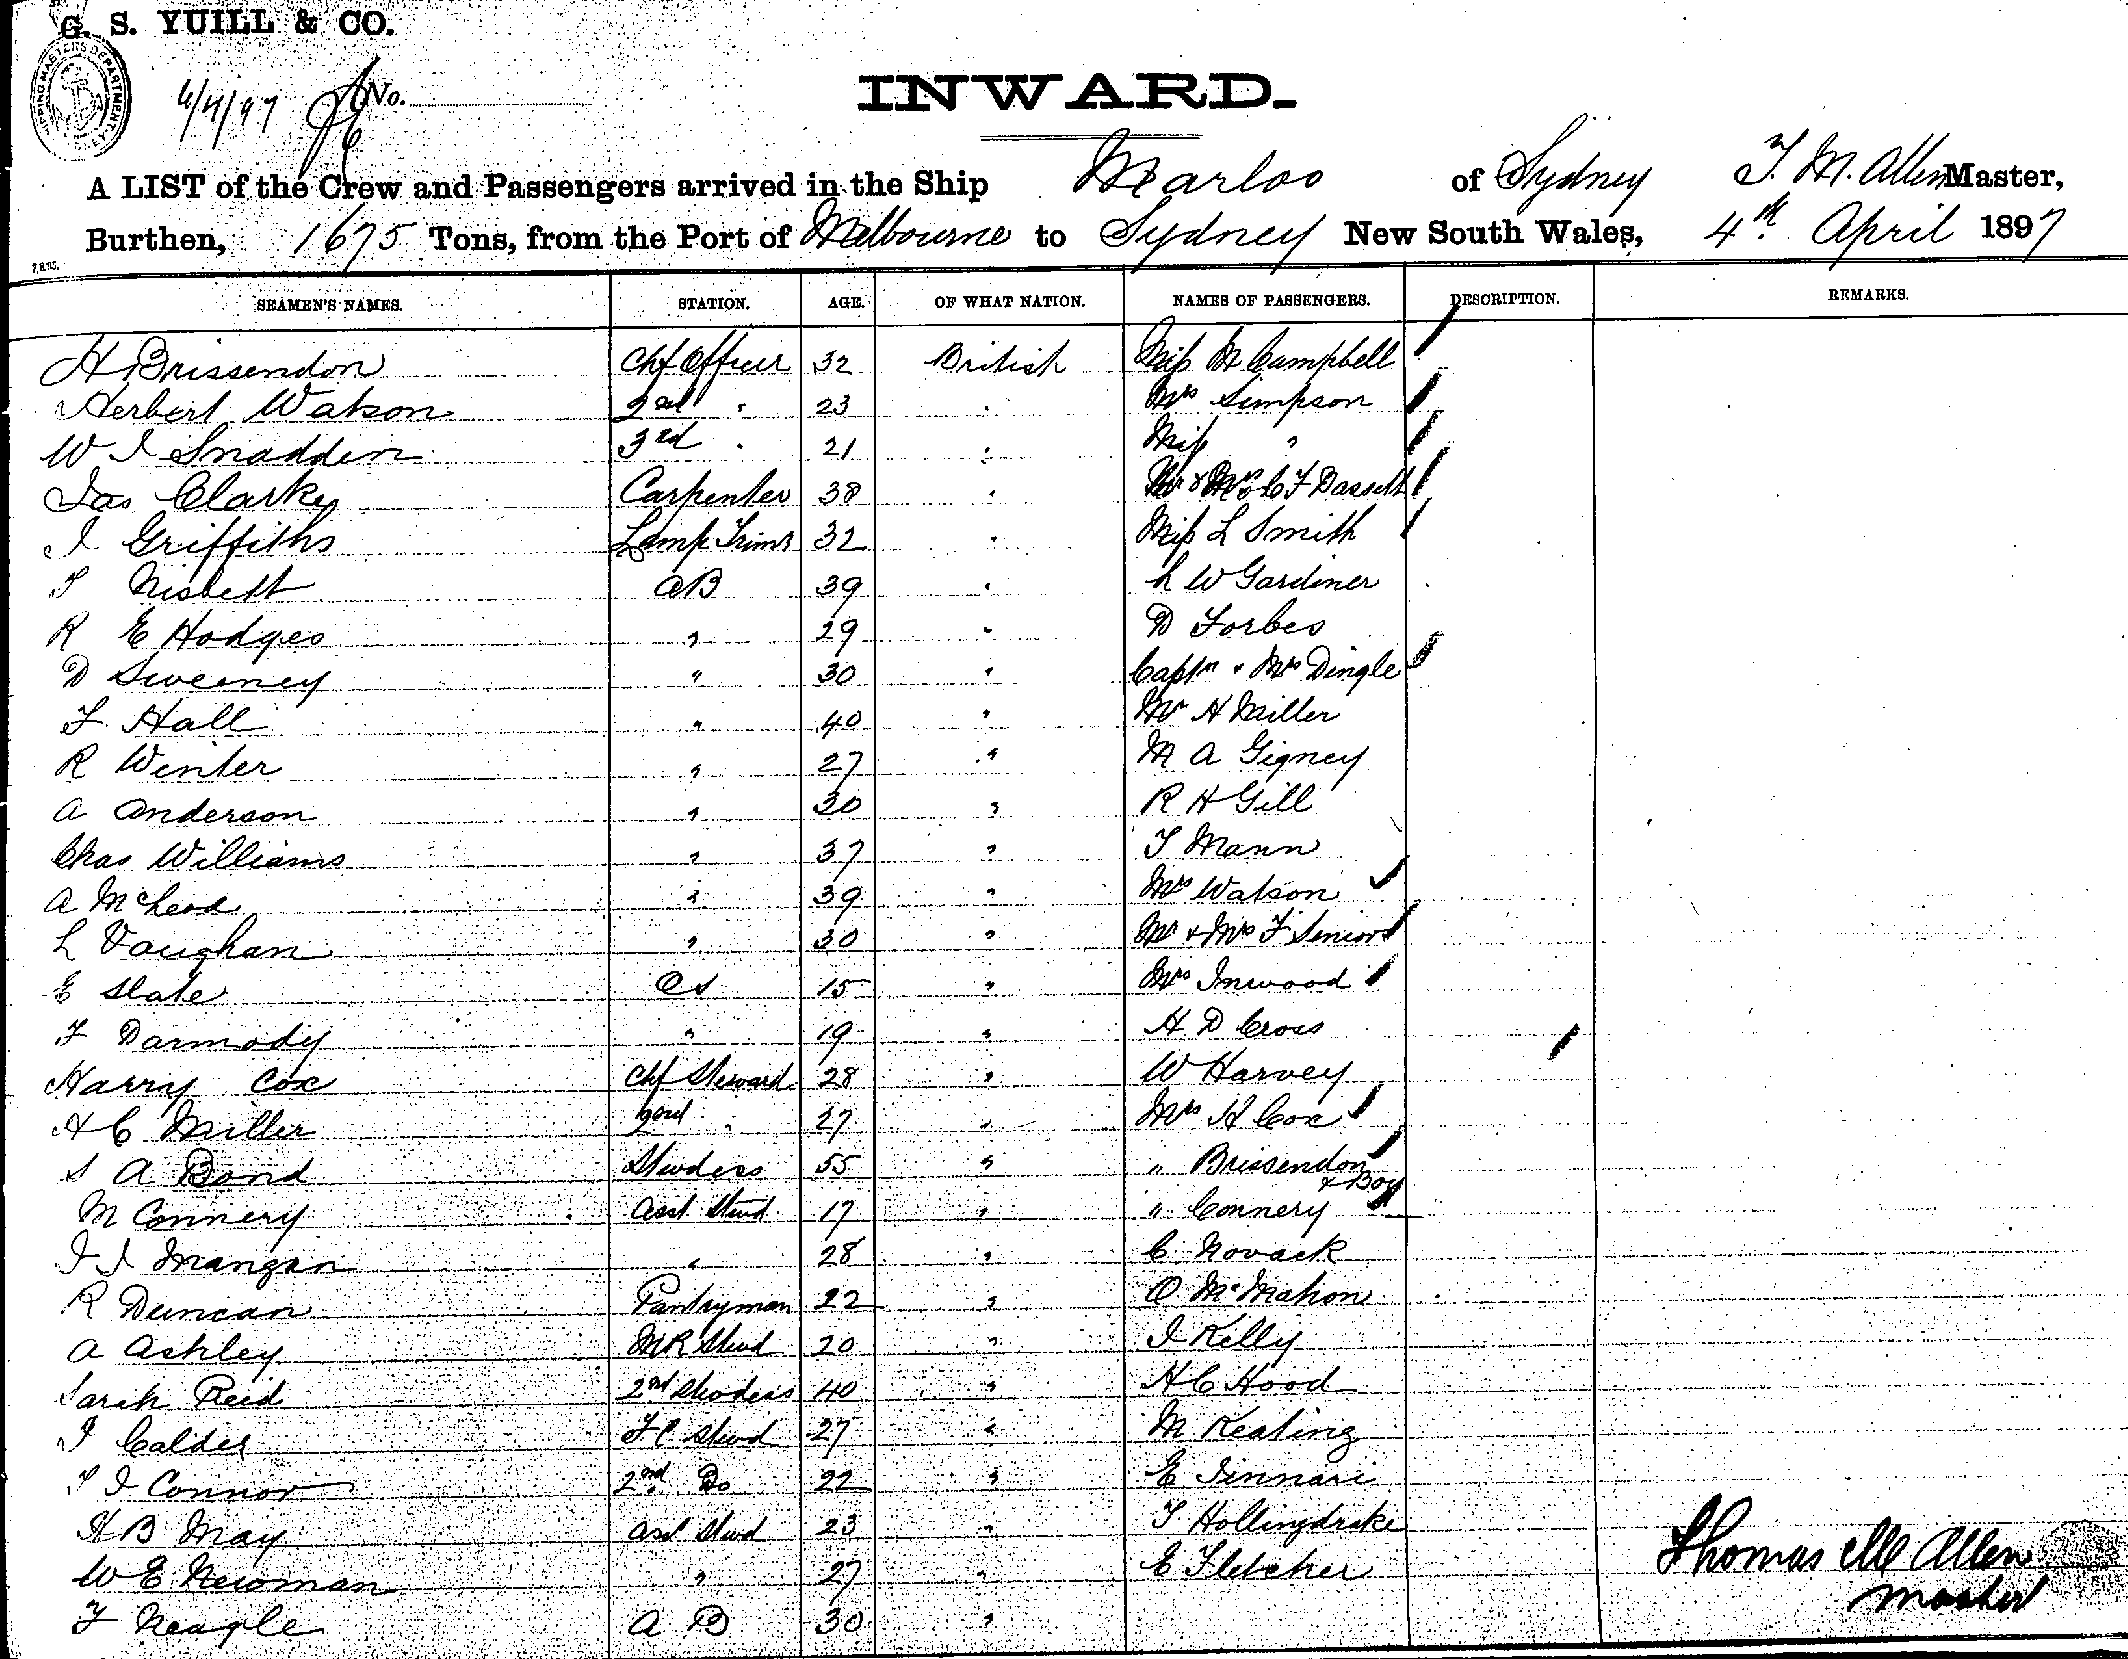 G. S. YUILL & CO.
6/4/97 No.
INWARD.
A LIST of the Crew and Passengers arrived in the Ship Marloo of Sydney T. M. Allen Master,
Burthen, 1675 Tons, from the Port of Melbourne to Sydney New South Wales, 4th April 1897
SEAMEN'S NAMES. STATION. AGE. OF WHAT NATION. NAMES OF PASSENGERS. DESCRIPTION. REMARKS.
H Brissendon Chf Officer 32 British Miss M Campbell
Herbert Watson 2nd " 23 " Mrs Simpson
W J Snadden 3rd " 21 " Miss "
Jas Clarke Carpenter 38 " Mr & Mrs C F Bassett
J Griffiths Lamp Trimr 32 " Miss L Smith
T Nisbett AB 39 " L W Gardiner
R E Hodges " 29 " D Forbes
D Sweeney " 30 " Captn & Mrs Dingle
F Hall " 40 " Mr H Miller
R Winter " 27 " M A Gigney
A Anderson " 30 " R H Gill
Chas Williams " 37 " T Mann
A McLeod " 39 " Mrs Watson
L Vaughan " 30 " Mr & Mrs F Senior
E Slate OS 15 " Mrs Inwood
F Darmody " 19 " H D Cross
Harry Cox Chf Steward 28 " W Harvey
H C Miller 2nd " 27 " Mrs H Cox
S A Bond Stwdess 55 " " Brissendon
& Boy
M Connery Asst Stwd 17 " " Connery
J J Mangan " 28 " C Novack
R Duncan Pantryman 22 " O McMahon
A Ashley MR Stwd 20 " J Kelly
Sarah Reid 2nd Stwdess 40 " H C Hood
J Calder F C Stwd 27 " M Keating
T J Connor 2nd Do 22 " E Jinnari
H B May Asst Stwd 23 " T Hollingdrake
W E Newman " 27 " E Fletcher
F Neagle A B 30 "
Thomas M Allen
Master